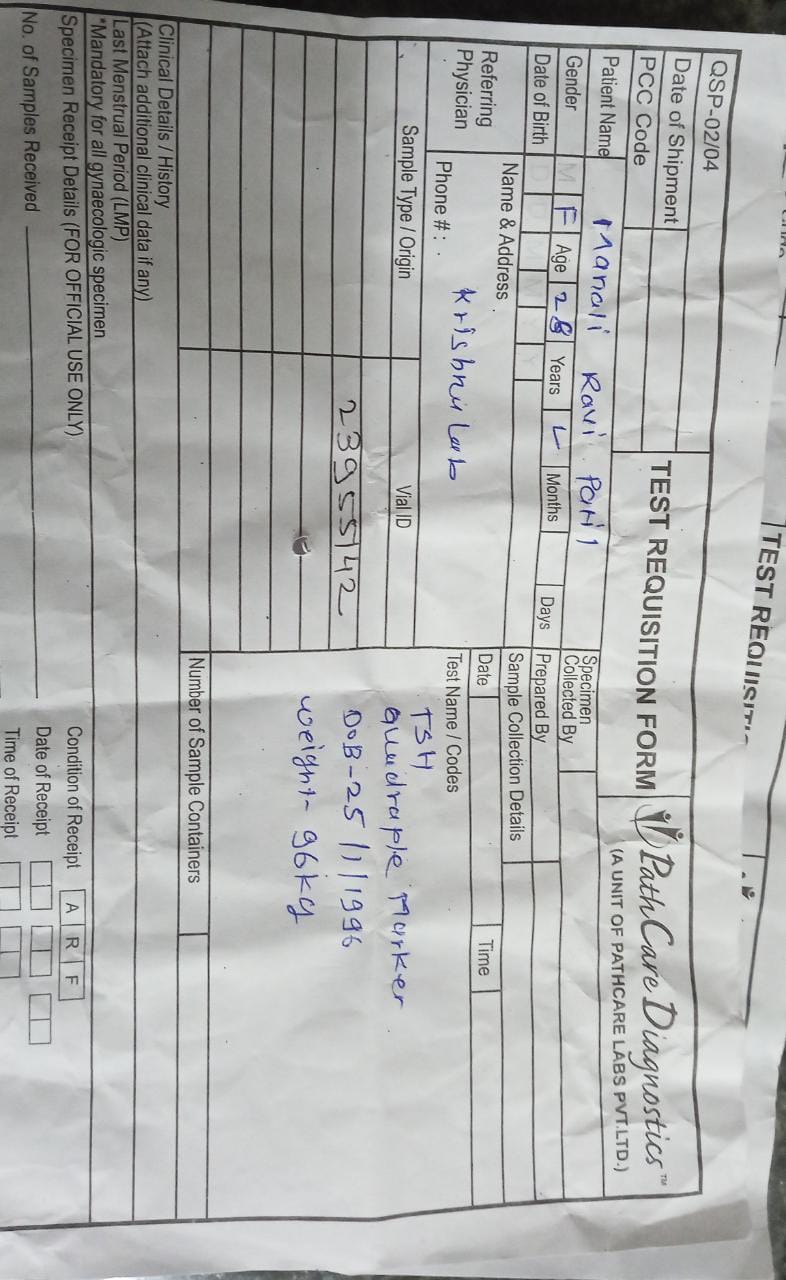 TEST REQUISITI
QSP-02/04
Date of Shipment
PCC Code
TEST REQUISITION FORM
PathCare Diagnostics™
(A UNIT OF PATHCARE LABS PVT.LTD.)
Patient Name Manali Ravi Patil
Specimen Collected By
Gender M F Age 28 Years Months Days
Prepared By
Date of Birth
Sample Collection Details
Name & Address
Date Time
Referring Physician
Krishna Lab
Phone # :
Test Name / Codes
Sample Type / Origin Vial ID
TSH
23955142
Quadraple Marker
DOB-25/1/1996
weight- 96kg
Number of Sample Containers
Clinical Details / History
(Attach additional clinical data if any)
Last Menstrual Period (LMP)
*Mandatory for all gynaecologic specimen
Specimen Receipt Details (FOR OFFICIAL USE ONLY)
Condition of Receipt A R F
No. of Samples Received
Date of Receipt
Time of Receipt